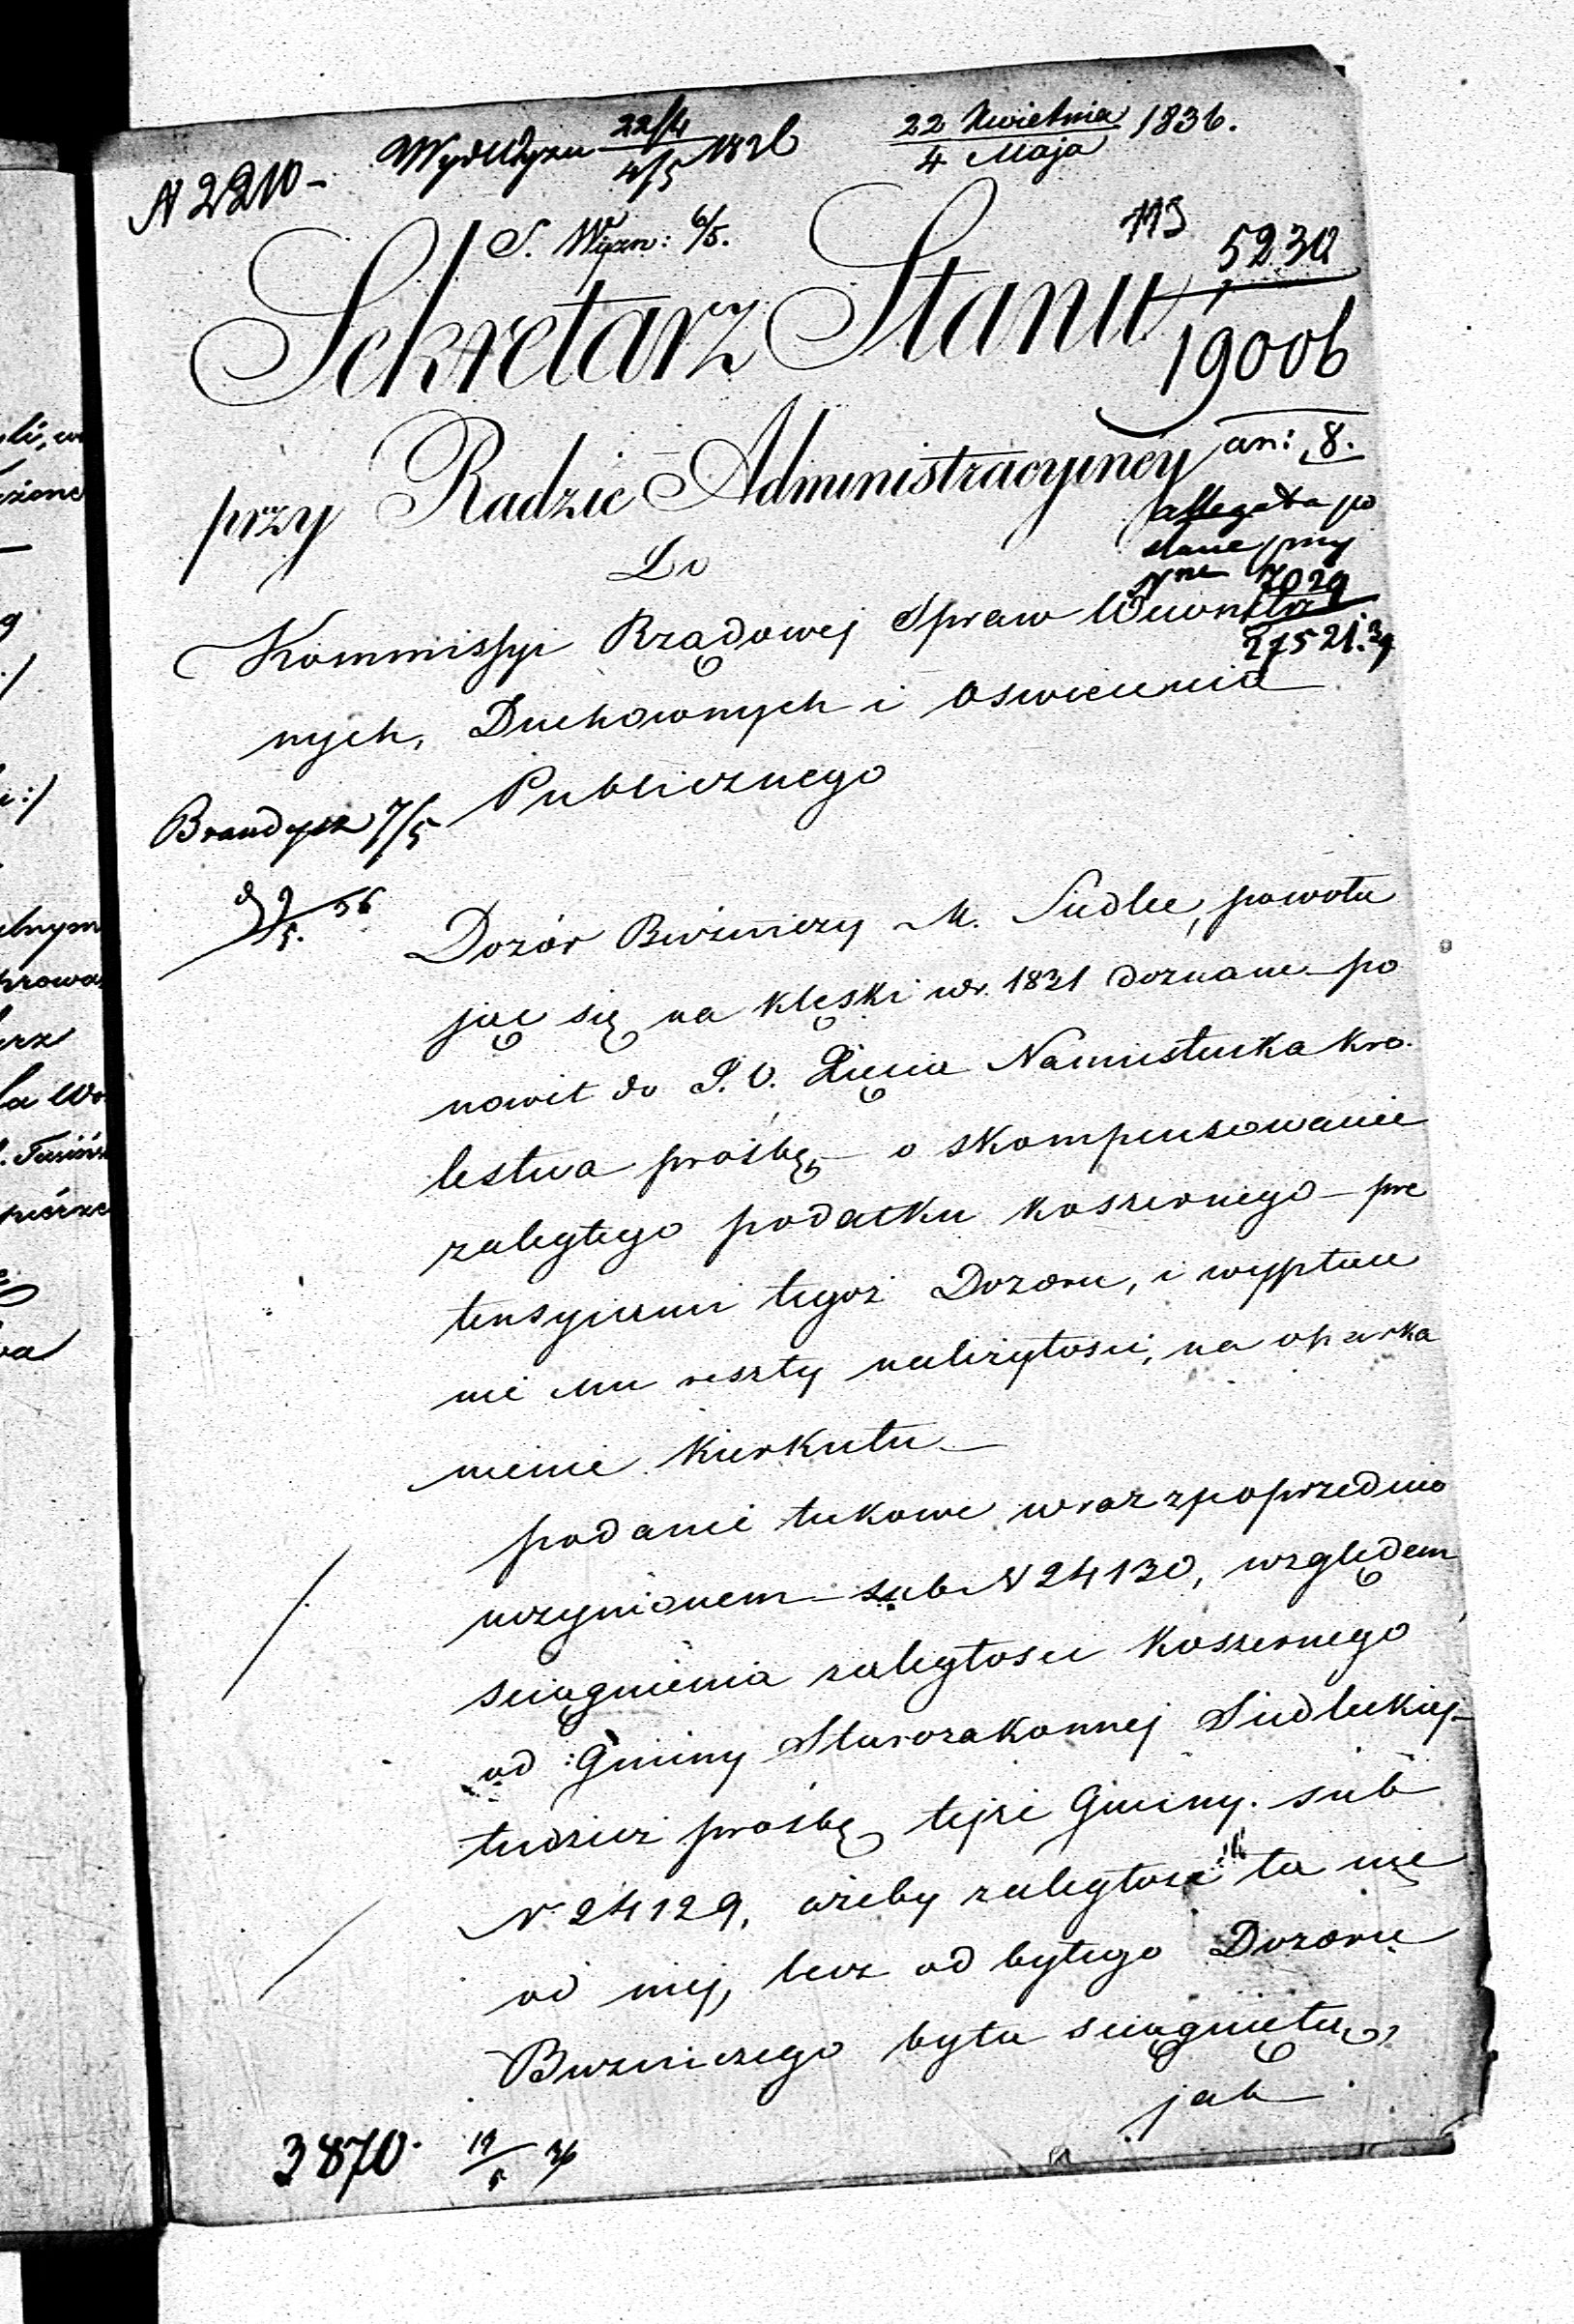 N 2210 -
Wyd Wyzn 22/4 4/5 1836
22 Kwietnia 1836.
4 Maja
S. Wyzn: 6/5.
113
5230
Sekretarz Stanu
19006
przy Radzie Administracyjney
an: 8.
allegata po
słane przy
Nrze 7029
Do
Kommissyi Rządowej Spraw Wewnętrz
27521.
nych, Duchownych i Oswiecenia
Publicznego
Brandysz 7/5
9/5. 36
Dozór Bóżniczy M. Siedlec, powołu
jąc się na klęski w r. 1831 doznane po
nowił do J. O. Xięcia Namiestnika Kró-
lestwa prośbę o skompensowanie
zaległego podatku koszernego pre
tensyjami tegoż Dozoru, i wypłace
nie mu reszty należytości, na oparka
nienie Kierkutu
podanie takowe wraz z poprzednio
uczynionem sub N 24130, względem
sciągnienia zaległosci Koszernego
od Gminy Starozakonnej Siedleckiej
tudzież prośbę tejże Gminy sub
N. 24129, ażeby zaległość ta nie
od niej, lecz od byłego Dozoru
Bożniczego była sciągniętą,
jak
3870. 19/5 36